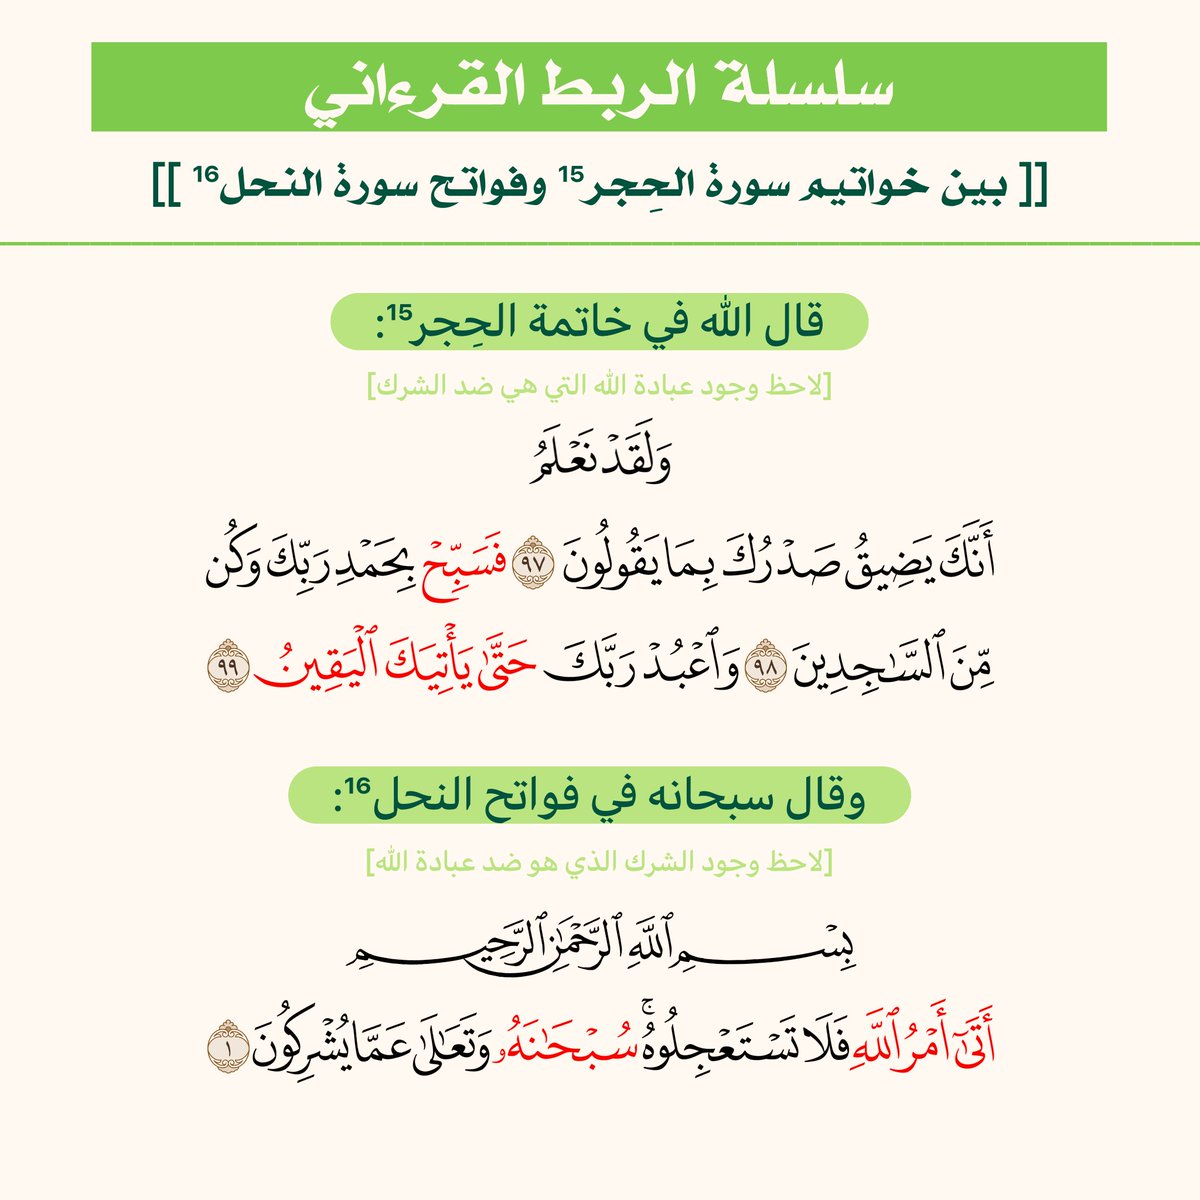 سلسلة الربط القرءاني
[[ بين خواتيم سورة الحِجر¹⁵ وفواتح سورة النحل¹⁶ ]]
قال الله في خاتمة الحِجر¹⁵:
[لاحظ وجود عبادة الله التي هي ضد الشرك]
وَلَقَدْ نَعْلَمُ
أَنَّكَ يَضِيقُ صَدْرُكَ بِمَا يَقُولُونَ ٩٧ فَسَبِّحْ بِحَمْدِ رَبِّكَ وَكُن
مِّنَ ٱلسَّـٰجِدِينَ ٩٨ وَٱعْبُدْ رَبَّكَ حَتَّىٰ يَأْتِيَكَ ٱلْيَقِينُ ٩٩
وقال سبحانه في فواتح النحل¹⁶:
[لاحظ وجود الشرك الذي هو ضد عبادة الله]
بِسْمِ ٱللَّهِ ٱلرَّحْمَـٰنِ ٱلرَّحِيمِ
أَتَىٰٓ أَمْرُ ٱللَّهِ فَلَا تَسْتَعْجِلُوهُ ۚ سُبْحَـٰنَهُۥ وَتَعَـٰلَىٰ عَمَّا يُشْرِكُونَ ١